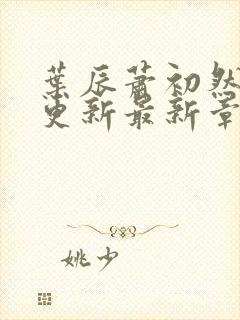 葉辰蕭初然
更新最新章
姚少